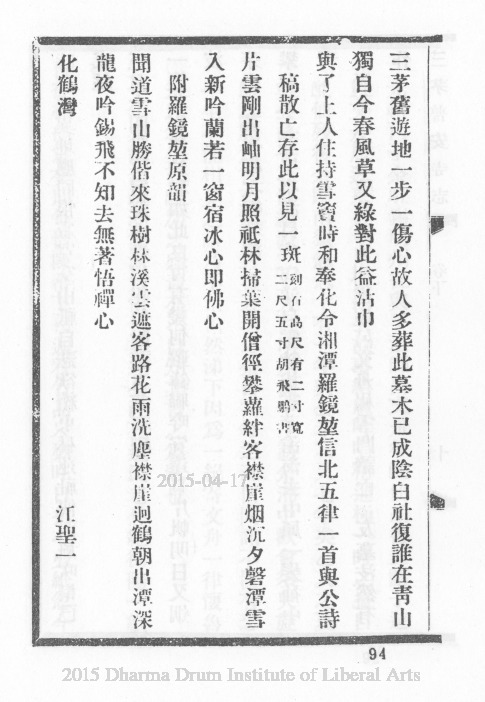 三茅舊遊地一步一傷心故人多葬此墓木已成陰白社復誰在靑山
獨自今春風草又綠對此益沾巾
與了上人住持雪竇時和奉化令湘潭羅鏡堃信北五律一首與公詩
稿散亡存此以見一斑刻石高尺有二寸寬二尺五寸胡飛鵬書
片雲剛出岫明月照祇林掃葉開僧徑攀蘿絆客襟崖烟沉夕磬潭雪
入新吟蘭若一窗宿冰心卽佛心
附羅鏡堃原韻
聞道雪山勝偕來珠樹林溪雲遮客路花雨洗塵襟崖迴鶴朝出潭深
龍夜吟錫飛不知去無著悟禪心
化鶴灣 江聖一
94
2015-04-17
2015 Dharma Drum Institute of Liberal Arts